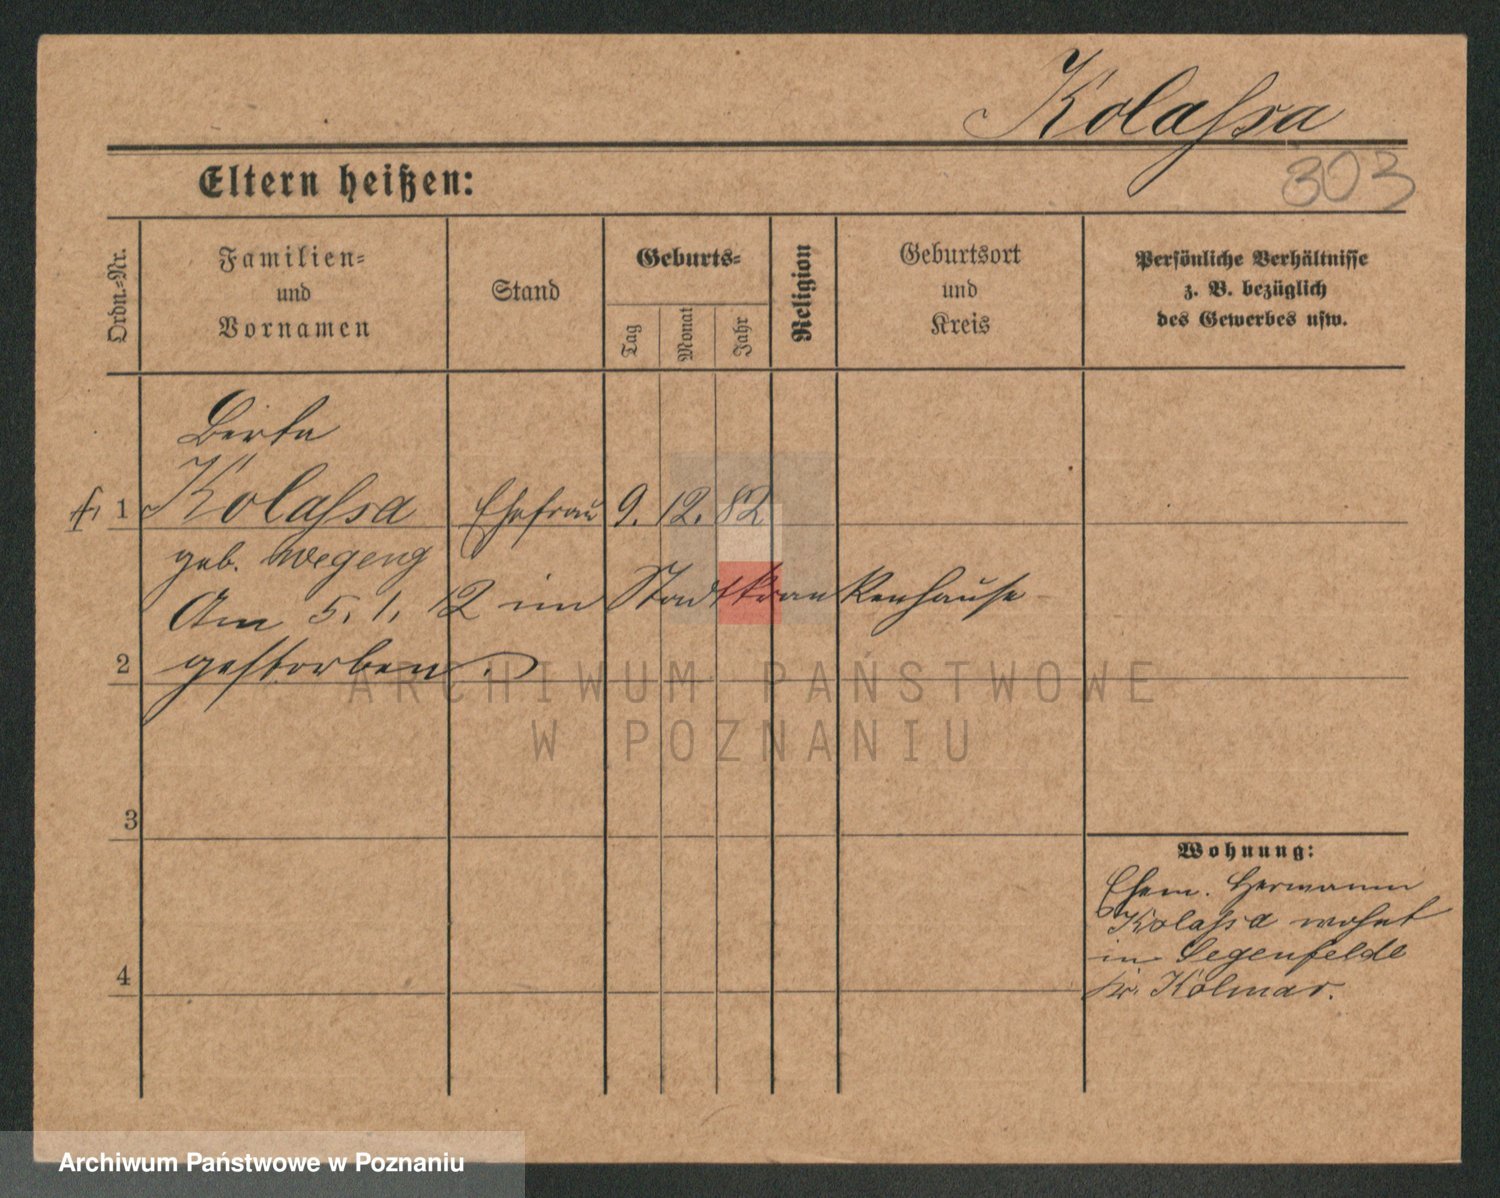 Kolaſsa
303
Eltern heißen:
Ordn.=Nr.
Familien=
und
Vornamen
Stand
Geburts=
Tag
Monat
Jahr
Religion
Geburtsort
und
Kreis
Persönliche Verhältnisse
z. B. bezüglich
des Gewerbes usw.
Berta
1 Kolaſsa Ehefrau 9. 12. 82
geb. Wegeng
Am 5. 1. 12 im Stadtkrankenhause
2 gestorben.
3
4
Wohnung:
Ehem. Hermann
Kolaſsa wohnt
in Segenfelde
Kr. Kolmar.
ARCHIWUM PAŃSTWOWE
W POZNANIU
Archiwum Państwowe w Poznaniu